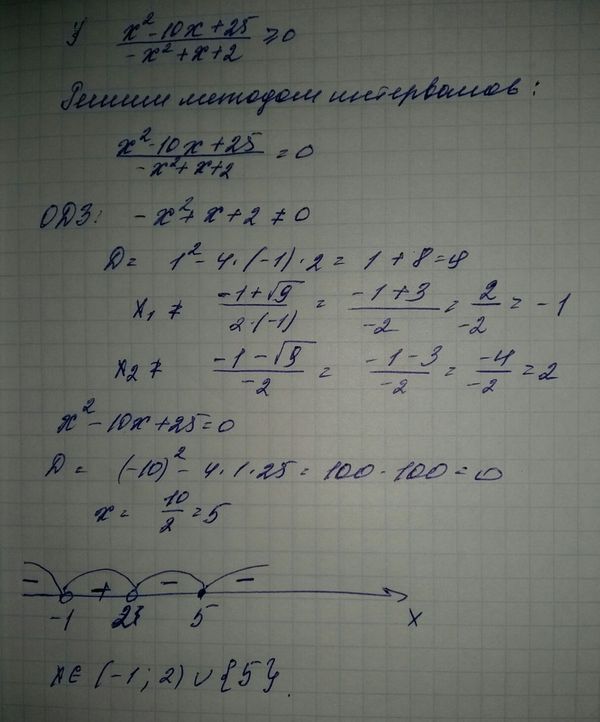 1) (x² - 10x + 25)/(-x² + x + 2) ≥ 0
Решим методом интервалов:
(x² - 10x + 25)/(-x² + x + 2) = 0
ОДЗ: -x² + x + 2 ≠ 0
D = 1² - 4·(-1)·2 = 1 + 8 = 9
x₁ ≠ (-1 + √9)/(2·(-1)) = (-1 + 3)/(-2) = 2/(-2) = -1
x₂ ≠ (-1 - √9)/(-2) = (-1 - 3)/(-2) = (-4)/(-2) = 2
x² - 10x + 25 = 0
D = (-10)² - 4·1·25 = 100 - 100 = 0
x = 10/2 = 5
- + - -
-1 2 5 x
x ∈ (-1; 2) ∪ {5}.